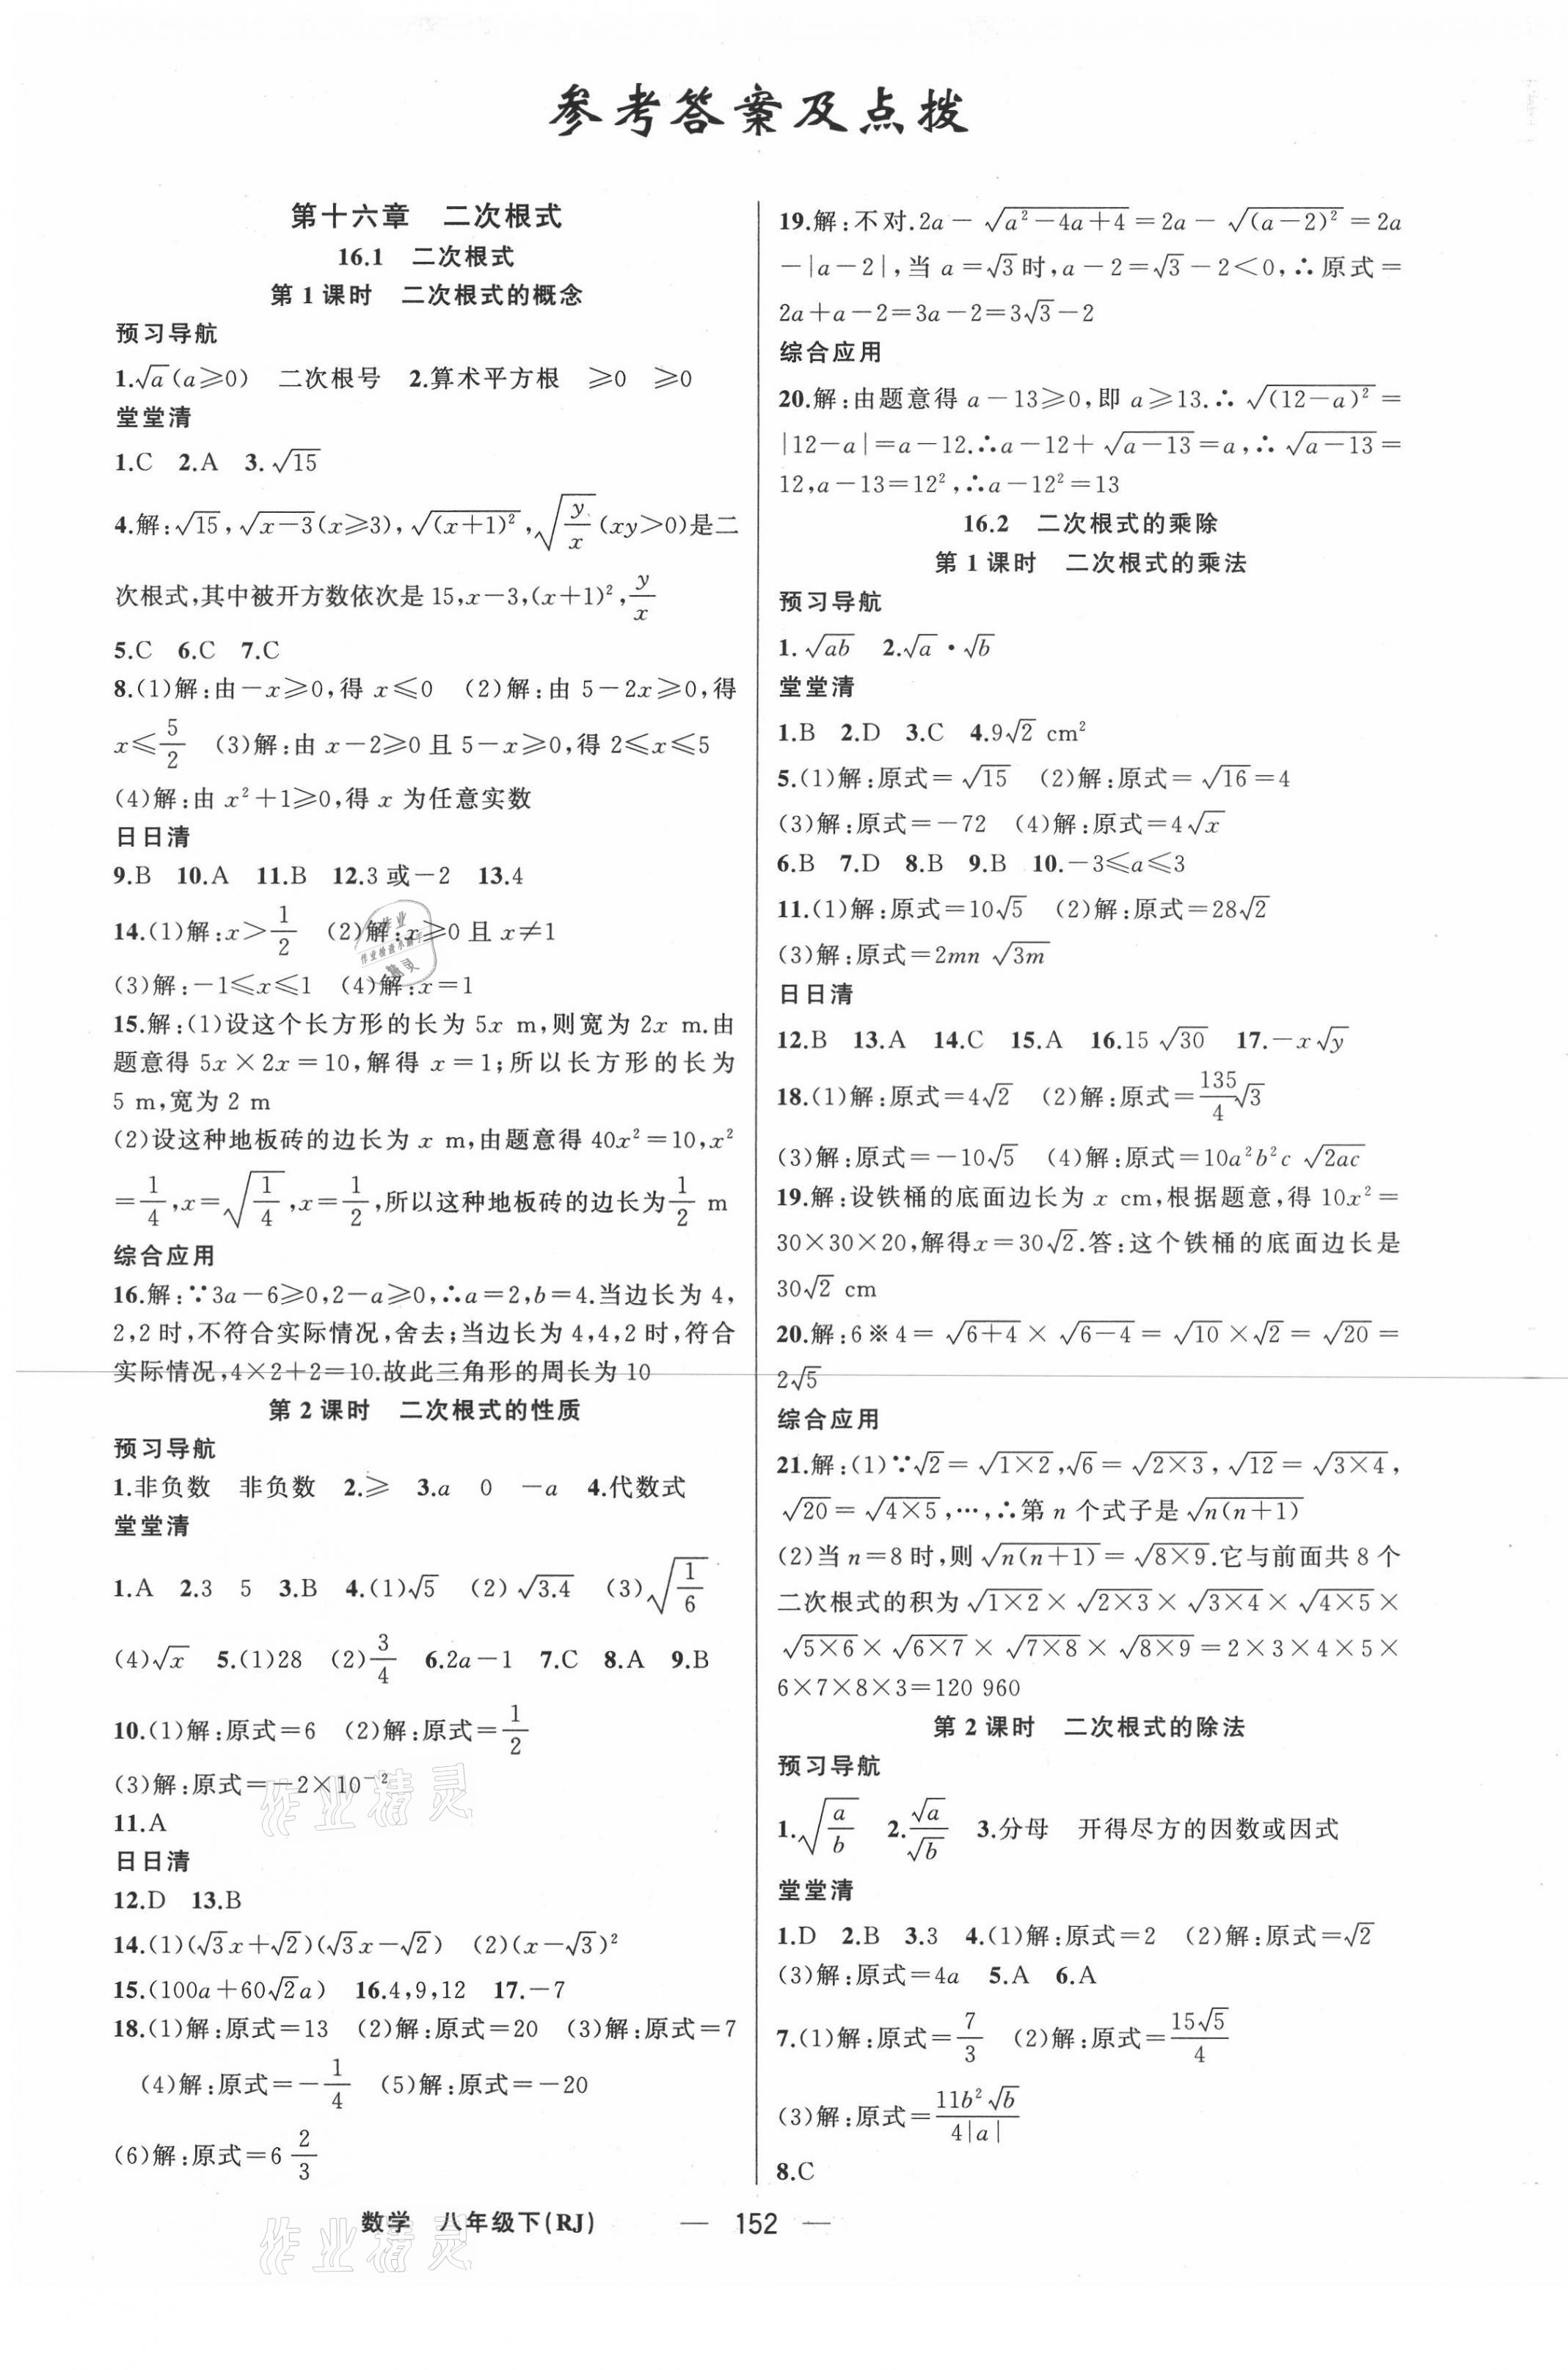 参考答案及点拨
第十六章 二次根式
16.1 二次根式
第1课时 二次根式的概念
预习导航
1.√a(a≥0) 二次根号 2.算术平方根 ≥0 ≥0
堂堂清
1.C 2.A 3.√15
4.解:√15,√(x-3)(x≥3),√((x+1)²),√(y/x)(xy>0)是二
次根式,其中被开方数依次是15,x-3,(x+1)²,y/x
5.C 6.C 7.C
8.(1)解:由-x≥0,得x≤0 (2)解:由5-2x≥0,得
x≤5/2 (3)解:由x-2≥0且5-x≥0,得2≤x≤5
(4)解:由x²+1≥0,得x为任意实数
日日清
9.B 10.A 11.B 12.3或-2 13.4
14.(1)解:x>1/2 (2)解:x≥0且x≠1
(3)解:-1≤x≤1 (4)解:x=1
15.解:(1)设这个长方形的长为5x m,则宽为2x m.由
题意得5x×2x=10,解得x=1;所以长方形的长为
5 m,宽为2 m
(2)设这种地板砖的边长为x m,由题意得40x²=10,x²
=1/4,x=√(1/4),x=1/2,所以这种地板砖的边长为1/2 m
综合应用
16.解:∵3a-6≥0,2-a≥0,∴a=2,b=4.当边长为4,
2,2时,不符合实际情况,舍去;当边长为4,4,2时,符合
实际情况,4×2+2=10.故此三角形的周长为10
第2课时 二次根式的性质
预习导航
1.非负数 非负数 2.≥ 3.a 0 -a 4.代数式
堂堂清
1.A 2.3 5 3.B 4.(1)√5 (2)√3.4 (3)√(1/6)
(4)√x 5.(1)28 (2)3/4 6.2a-1 7.C 8.A 9.B
10.(1)解:原式=6 (2)解:原式=1/2
(3)解:原式=-2×10⁻²
11.A
日日清
12.D 13.B
14.(1)(√3x+√2)(√3x-√2) (2)(x-√3)²
15.(100a+60√2a) 16.4,9,12 17.-7
18.(1)解:原式=13 (2)解:原式=20 (3)解:原式=7
(4)解:原式=-1/4 (5)解:原式=-20
(6)解:原式=6 2/3
19.解:不对.2a-√(a²-4a+4)=2a-√((a-2)²)=2a
-|a-2|,当a=√3时,a-2=√3-2<0,∴原式=
2a+a-2=3a-2=3√3-2
综合应用
20.解:由题意得a-13≥0,即a≥13.∴√((12-a)²)=
|12-a|=a-12.∴a-12+√(a-13)=a,∴√(a-13)=
12,a-13=12²,∴a-12²=13
16.2 二次根式的乘除
第1课时 二次根式的乘法
预习导航
1.√(ab) 2.√a·√b
堂堂清
1.B 2.D 3.C 4.9√2 cm²
5.(1)解:原式=√15 (2)解:原式=√16=4
(3)解:原式=-72 (4)解:原式=4√x
6.B 7.D 8.B 9.B 10.-3≤a≤3
11.(1)解:原式=10√5 (2)解:原式=28√2
(3)解:原式=2mn√(3m)
日日清
12.B 13.A 14.C 15.A 16.15√30 17.-x√y
18.(1)解:原式=4√2 (2)解:原式=135/4√3
(3)解:原式=-10√5 (4)解:原式=10a²b²c√(2ac)
19.解:设铁桶的底面边长为x cm,根据题意,得10x²=
30×30×20,解得x=30√2.答:这个铁桶的底面边长是
30√2 cm
20.解:6※4=√(6+4)×√(6-4)=√10×√2=√20=
2√5
综合应用
21.解:(1)∵√2=√(1×2),√6=√(2×3),√12=√(3×4),
√20=√(4×5),…,∴第n个式子是√(n(n+1))
(2)当n=8时,则√(n(n+1))=√(8×9).它与前面共8个
二次根式的积为√(1×2)×√(2×3)×√(3×4)×√(4×5)×
√(5×6)×√(6×7)×√(7×8)×√(8×9)=2×3×4×5×
6×7×8×3=120 960
第2课时 二次根式的除法
预习导航
1.√(a/b) 2.√a/√b 3.分母 开得尽方的因数或因式
堂堂清
1.D 2.B 3.3 4.(1)解:原式=2 (2)解:原式=√2
(3)解:原式=4a 5.A 6.A
7.(1)解:原式=7/3 (2)解:原式=15√5/4
(3)解:原式=11b²√b/4|a|
8.C
数学 八年级下(RJ) — 152 —
作业精灵
作业精灵